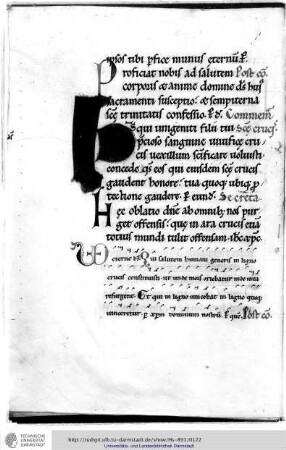 ipsos tibi p̄fice munus eternū. P.
Proficiat nobis ad salutem Post cō.
corporis & anime domine dš huiꝰ
sacramenti susceptio. & sempiterna
scē trinitatis confessio. P. d. Commem̄
Dš qui unigeniti filii tui Scē crucis
p̄cioso sanguine uiuifice cru-
cis uexillum scificare uoluisti
concede qs̄ eos qui eiusdem scē crucis
gaudent honore. tua quoq; ubiq; p̄
tectione gaudere. P. eund. Secreta
Hec oblatio dnē ab omnibꝰ nos pur-
get offensis. que in ara crucis etiā
totius mundi tulit offensam. ihc xpc.
eterne dš. Qui salutem humani generis in ligno
crucis constituisti. ut unde mors oriebatur inde uita
resurgeret. Et qui in ligno uincebat in ligno quoq;
uinceretur. p̄ xpm dominum nostrū. P quē. Post cō.
TECHNISCHE
UNIVERSITÄT
DARMSTADT
http://tudigit.ulb.tu-darmstadt.de/show/Hs-891/0122
Universitäts- und Landesbibliothek Darmstadt